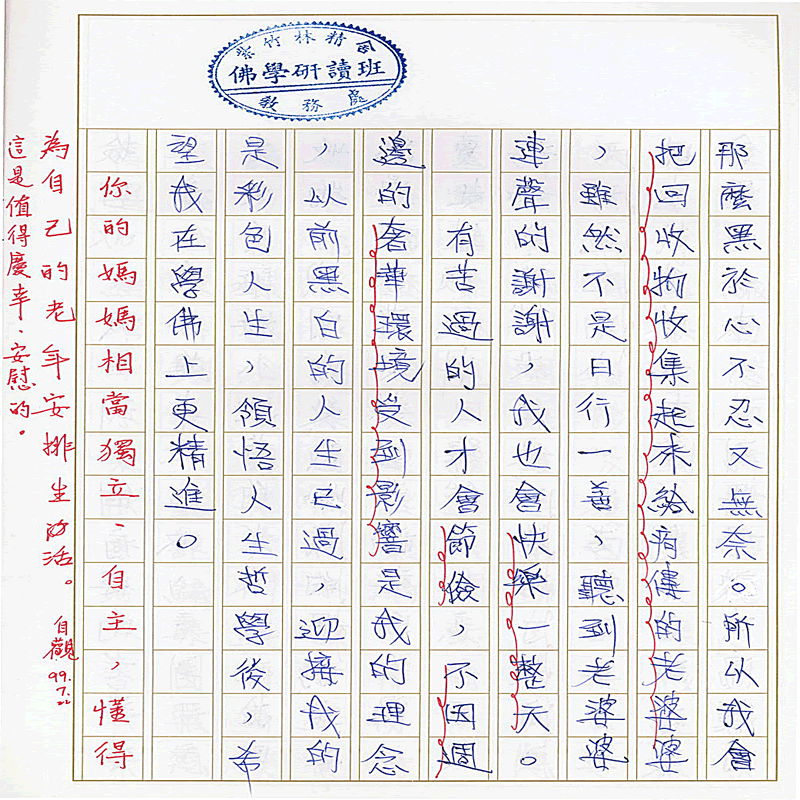 紫竹林精舍
佛學研讀班
教務處
那麼黑於心不忍又無奈。所以我會
把回收物收集起來給痀僂的老婆婆
，雖然不是日行一善，聽到老婆婆
連聲的謝謝，我也會快樂一整天。
有苦過的人才會節儉，不因週
邊的奢華環境受到影響是我的理念
，以前黑白的人生已過，迎接我的
是，彩色人生，領悟人生哲學後，希
望我在學佛上更精進。
你的媽媽相當獨立、自主，懂得
為自己的老年安排生活。
這是值得慶幸、安慰的。
自觀
99.7.22